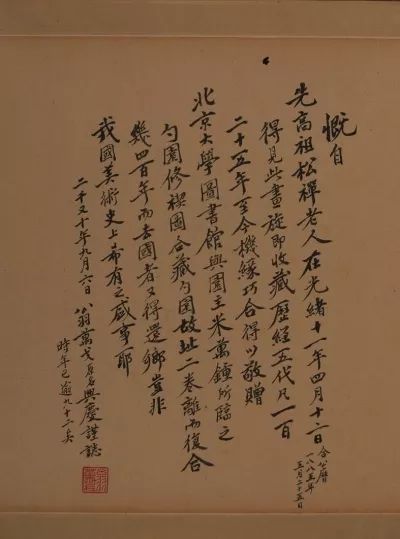 慨自
先高祖松禪老人在光緒十一年四月十二日合公曆一八八五年五月二十五日
得見此畫旋即收藏歷經五代凡一百
二十五年至今機緣巧合得以敬贈
北京大學圖書館與園主米萬鍾所臨之
勺園修禊圖合藏勺園故址二卷離而復合
幾四百年而去國者又得還鄉豈非
我國美術史上希有之盛事耶
二千又十年九月六日翁萬戈原名興慶謹誌
時年已逾九十二矣